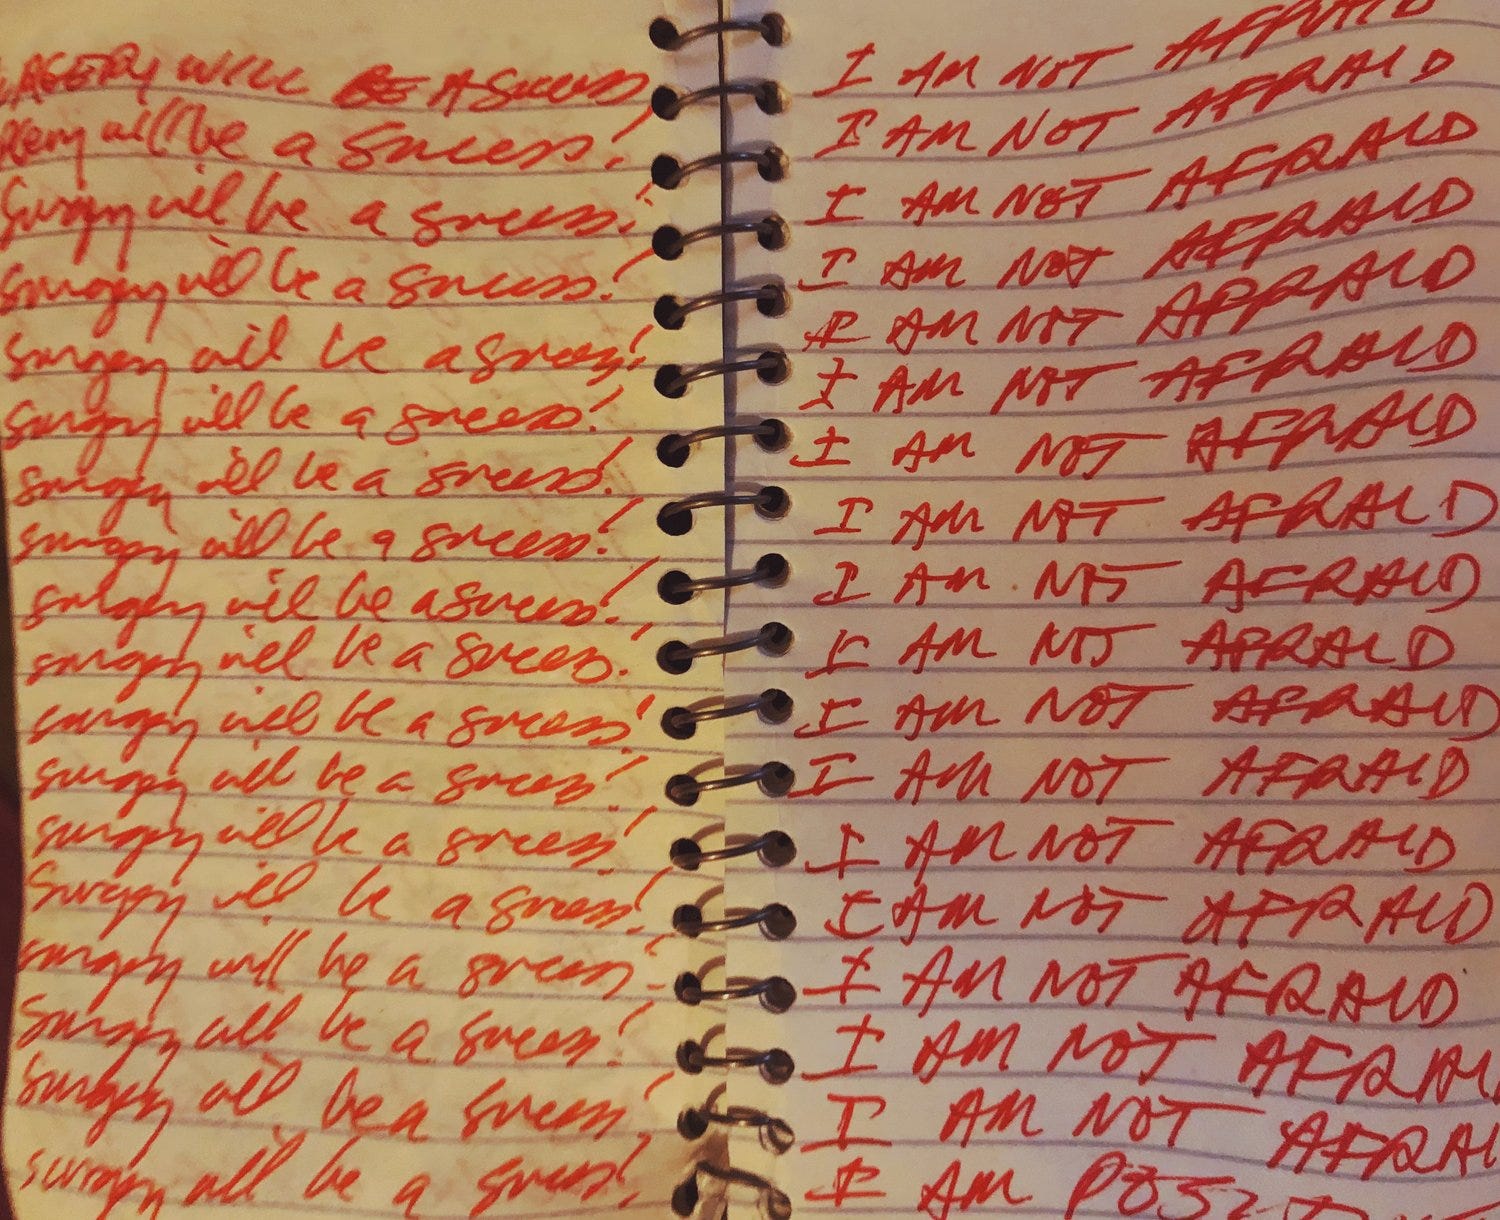 WILL BE A Success
will be a success!
Surgery will be a success!
Surgery will be a success!
Surgery will be a success!
Surgery will be a success!
surgery will be a success!
surgery will be a success!
surgery will be a success!
surgery will be a success!
surgery will be a success!
surgery will be a success!
surgery will be a success!
Surgery will be a success!
surgery will be a success!
Surgery will be a success!
Surgery will be a success!
surgery will be a success!
I AM NOT AFRAID
I AM NOT AFRAID
I AM NOT AFRAID
I AM NOT AFRAID
I AM NOT AFRAID
I AM NOT AFRAID
I AM NOT AFRAID
I AM NOT AFRAID
I AM NOT AFRAID
I AM NOT AFRAID
I AM NOT AFRAID
I AM NOT AFRAID
I AM NOT AFRAID
I AM NOT AFRAID
I AM NOT AFRAID
I AM NOT AFRAI
I AM NOT AFRAI
I AM